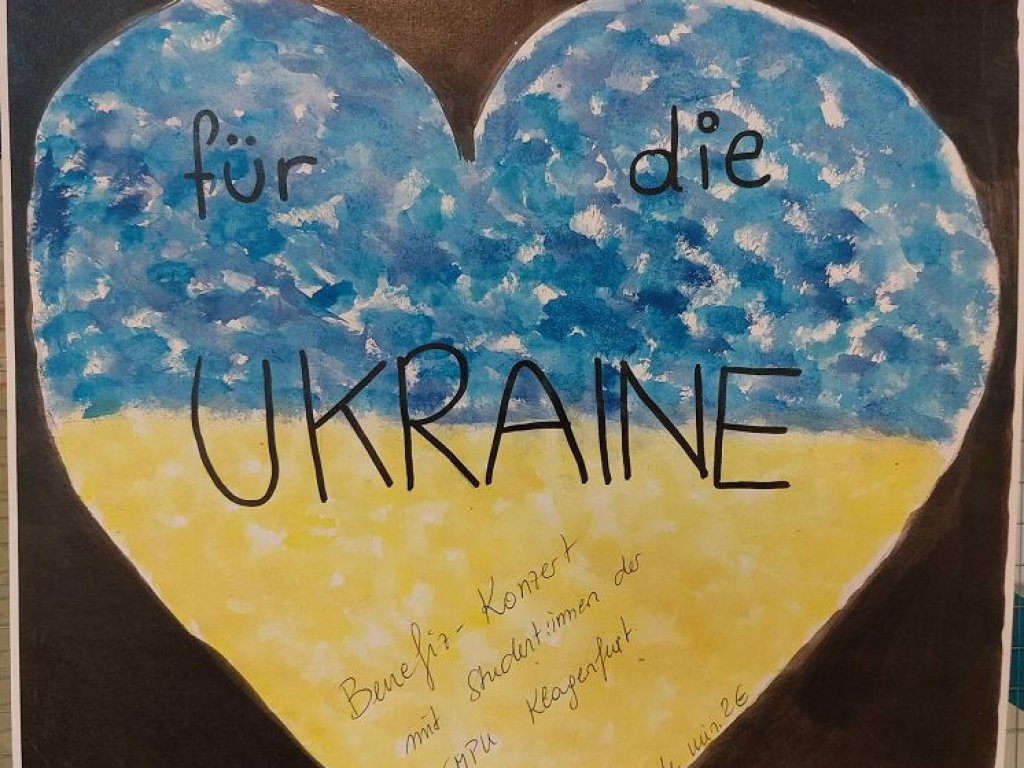 für die
UKRAINE
Benefiz-Konzert
mit Student:innen der
Klagenfurt.
min. 2€